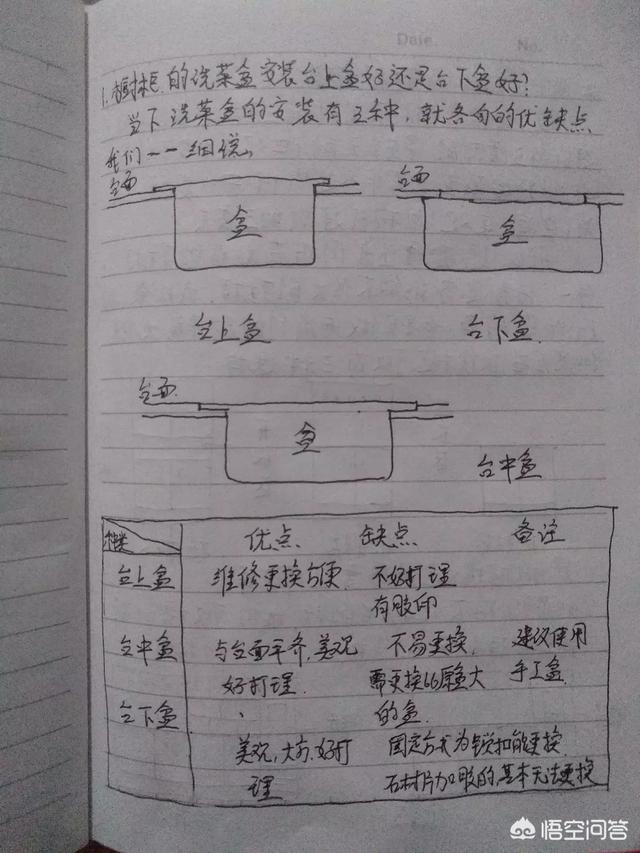 Date. No.
1.橱柜的洗菜盆安装台上盆好还是台下盆好?
当下洗菜盆的安装有三种,就各自的优缺点
我们一一细说。
台面
盆
台上盆
台面
盆
台下盆.
台面
盆
台中盆
种类 优点. 缺点 备注
台上盆 维修更换方便 不好打理
有胶印
台中盆 与台面平齐,美观 不易更换, 建议使用
好打理. 需更换比原盆大 手工盆.
的盆.
台下盆
美观,大方,好打 固定方式为锁扣能更换.
理 石材片加胶的,基本无法更换
悟空问答